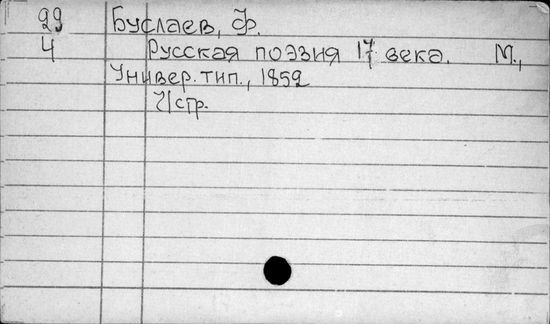 29 Буслаев, Ф.
4 Русская поэзия 17 века. М.,
Универ. тип., 1852
71 стр.